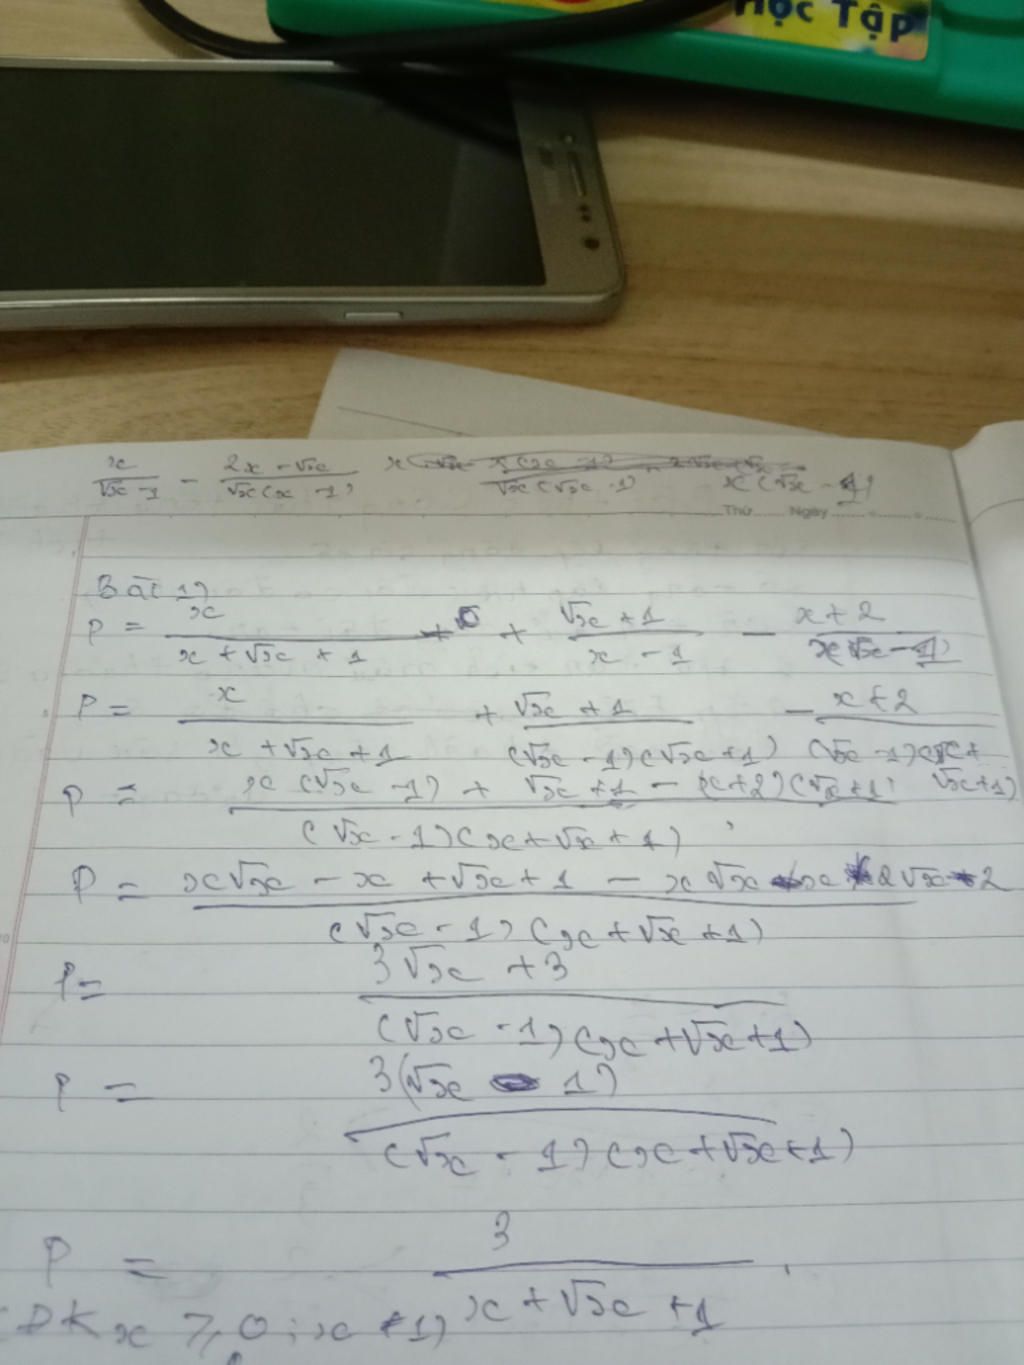 Học Tập
x/(√x - 1) - (2x - √x)/(√x(x - 1)) x(√x - 1)
√x(√x - 1)
Thứ Ngày
Bài 1)
P = x/(x + √x + 1) + (√x + 1)/(x - 1) - (x + 2)/(x√x - 1)
P = x/(x + √x + 1) + (√x + 1)/((√x - 1)(√x + 1)) - (x + 2)/((√x - 1)(x + √x + 1))
P = (x(√x - 1) + √x + 1 - (x + 2)(√x + 1))/((√x - 1)(x + √x + 1))
P = (x√x - x + √x + 1 - x√x x 2√x 2)/((√x - 1)(x + √x + 1))
P = (3√x + 3)/((√x - 1)(x + √x + 1))
P = 3(√x - 1)/((√x - 1)(x + √x + 1))
P = 3/(x + √x + 1)
ĐK x ≥ 0; x ≠ 1)